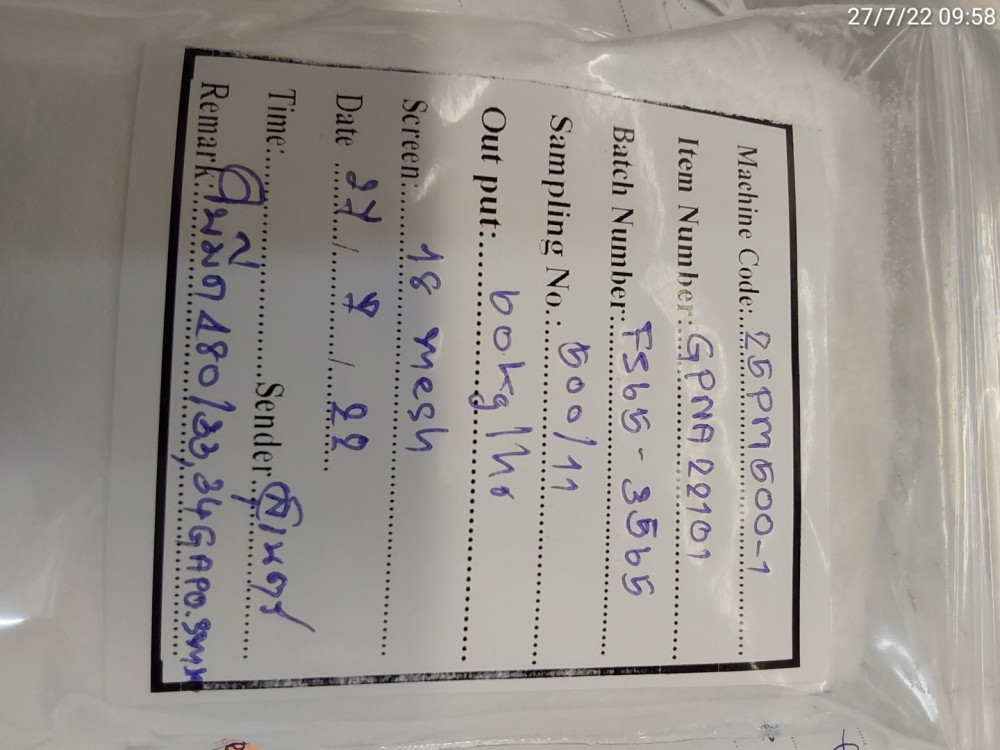 27/7/22 09:58
Machine Code: 25PM500-1
Item Number: GPNA 22101
Batch Number: FS65 - 3565
Sampling No. 500/11
Out put: 60kg/hr
Screen: 18 mesh
Date 27 / 7 / 22
Time: Sender:
Remark: 480/33,34GAPO.